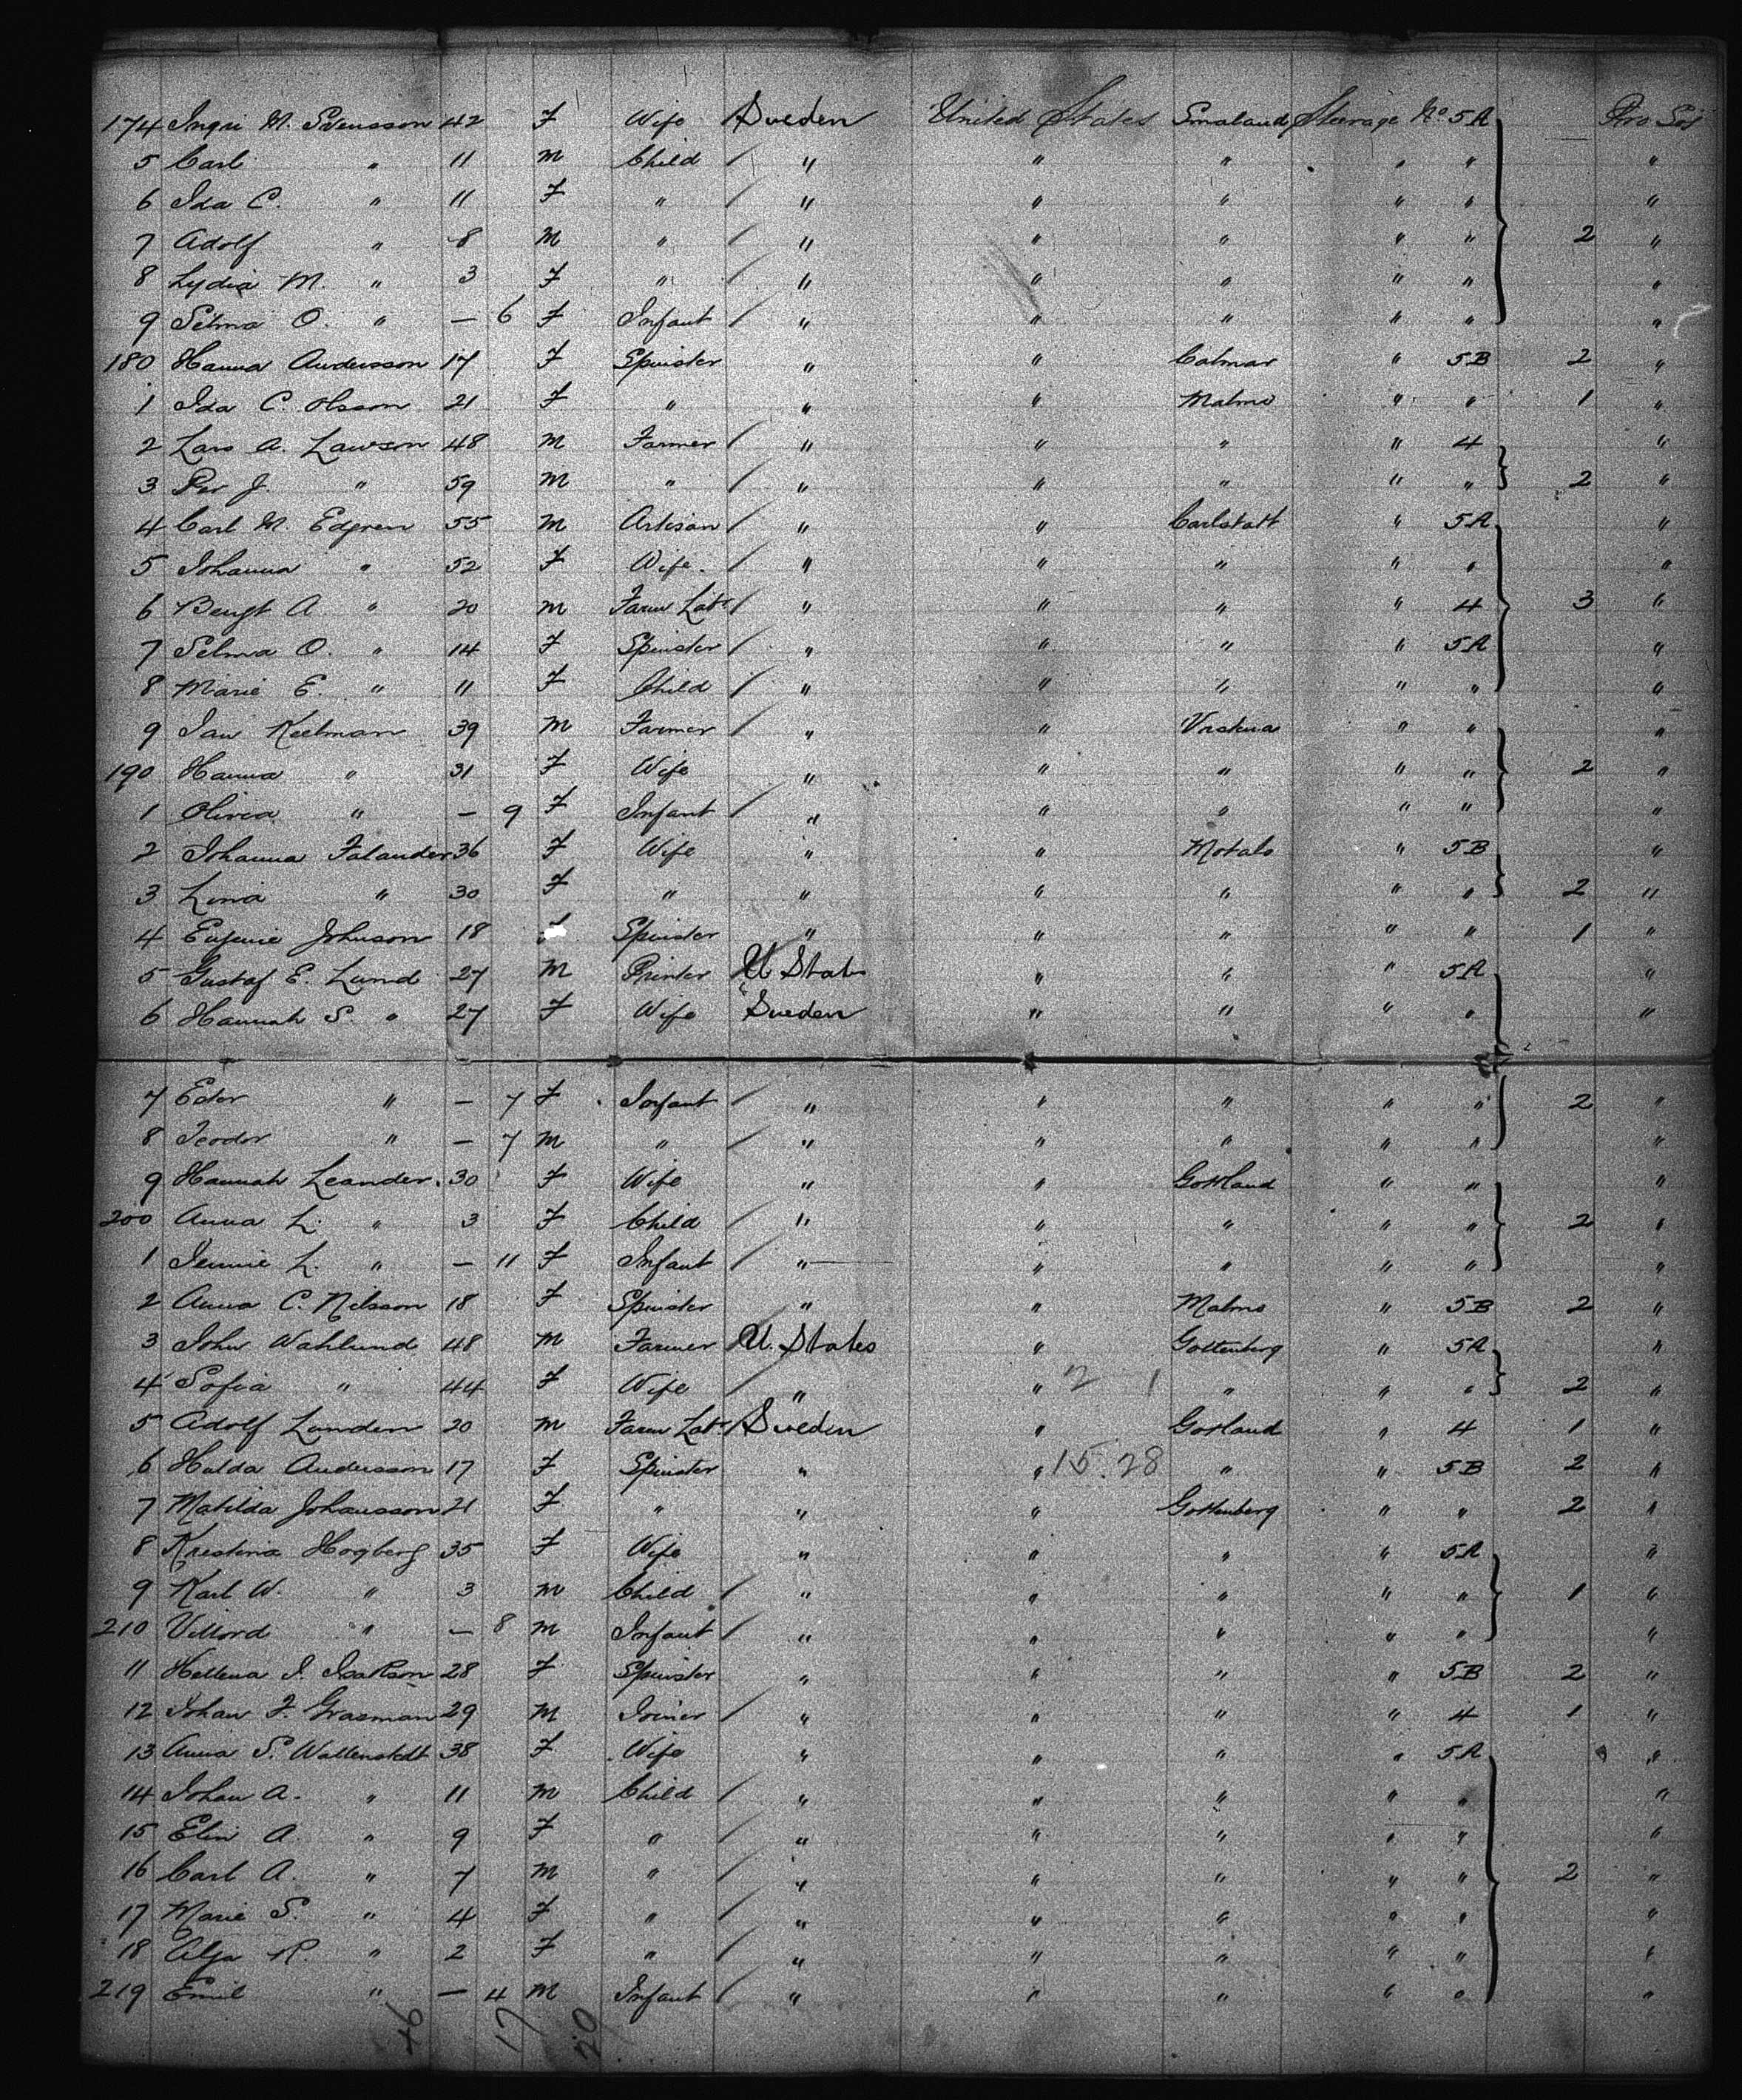 174 Ingri M. Svensson 42 F Wife Sweden United States Smaland Steerage No 5A Pro Soj
5 Carl " 11 M Child " " " " " "
6 Ida C. " 11 F " " " " " " "
7 Adolf " 8 M " " " " " " 2 "
8 Lydia M. " 3 F " " " " " " "
9 Selma O. " — 6 F Infant " " " " " "
180 Hanna Andersson 17 F Spinster " " Calmar " 5B 2 "
1 Ida C. Olsson 21 F " " " Malmo " " 1 "
2 Lars A. Lawson 48 M Farmer " " " " 4 "
3 Per J. " 59 M " " " " " " 2 "
4 Carl M. Edgren 55 M Artisan " " Carlstatt " 5A "
5 Johanna " 52 F Wife. " " " " " "
6 Bengt A. " 20 M Farm Labr " " " " 4 3 "
7 Selma O. " 14 F Spinster " " " " 5A "
8 Marie E. " 11 F Child " " " " " "
9 Jan 39 M Farmer " " " " "
190 Hanna " 31 F Wife " " " " " 2 "
1 Olivia " — 9 F Infant " " " " " "
2 Johanna Falander 36 F Wife " " Motala " 5B "
3 Lina " 30 F " " " " " " 2 "
4 Eugenie Johnson 18 F Spinster " " " " " 1 "
5 Gustaf E. Lund 27 M Printer U States " " " 5A "
6 Hannah S. " 27 F Wife Sweden " " " " "
7 Ester " — 7 F Infant " " " " " 2 "
8 Teodor " — 7 M " " " " " " "
9 Hannah Leander. 30 F Wife " " Gottland " " "
200 Anna L. " 3 F Child " " " " " 2 "
1 Jennie L. " — 11 F Infant " " " " " "
2 Anna C. Nilsson 18 F Spinster " " Malmo " 5B 2 "
3 John Wahlund 48 M Farmer U. States " Gottenberg " 5A "
4 Sofia " 44 F Wife " " 2 1 " " " 2 "
5 Adolf Lunden 20 M Farm Labr Sweden " Gotland " 4 1 "
6 Hulda Andersson 17 F Spinster " " 15.28 " " 5B 2 "
7 Matilda Johansson 21 F " " " Gottenberg " " 2 "
8 Kristina Hogberg 35 F Wife " " " " 5A "
9 Karl W. " 3 M Child " " " " " 1 "
210 " — 8 M Infant " " " " " "
11 Hellena I. Isakson 28 F Spinster " " " " 5B 2 "
12 Johan F. Grasman 29 M Joiner " " " " 4 1 "
13 Anna S. Wallenstedt 38 F Wife " " " " 5A "
14 Johan A. " 11 M Child " " " " " "
15 Elin A. " 9 F " " " " " " "
16 Carl A. " 7 M " " " " " " 2 "
17 Marie S. " 4 F " " " " " " "
18 R. " 2 F " " " " " " "
219 Emil " — 4 M Infant " " " " " "
46 17 20